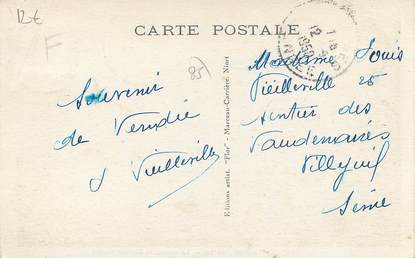 12€
CARTE POSTALE
F
85)
Souvenir
de Vendée
J Vieilleville
Editions artist. "Flor" - Marceau-Carrière, Niort
1950
Madame Louis
Vieilleville 25
sentier des
Vaudenaires
Villejuif
Seine